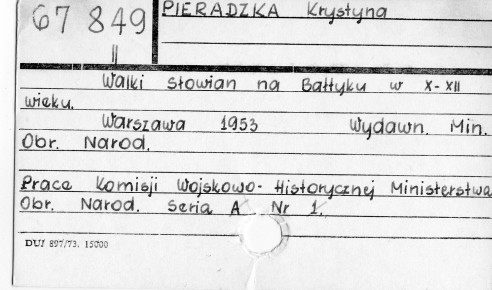 67 849
II
PIERADZKA Krystyna
Walki Słowian na Bałtyku w X-XII
wieku.
Warszawa 1953 Wydawn. Min.
Obr. Narod.
Prace Komisji Wojskowo-Historycznej Ministerstwa
Obr. Narod. Seria A Nr 1.
DUJ 897/73. 15000